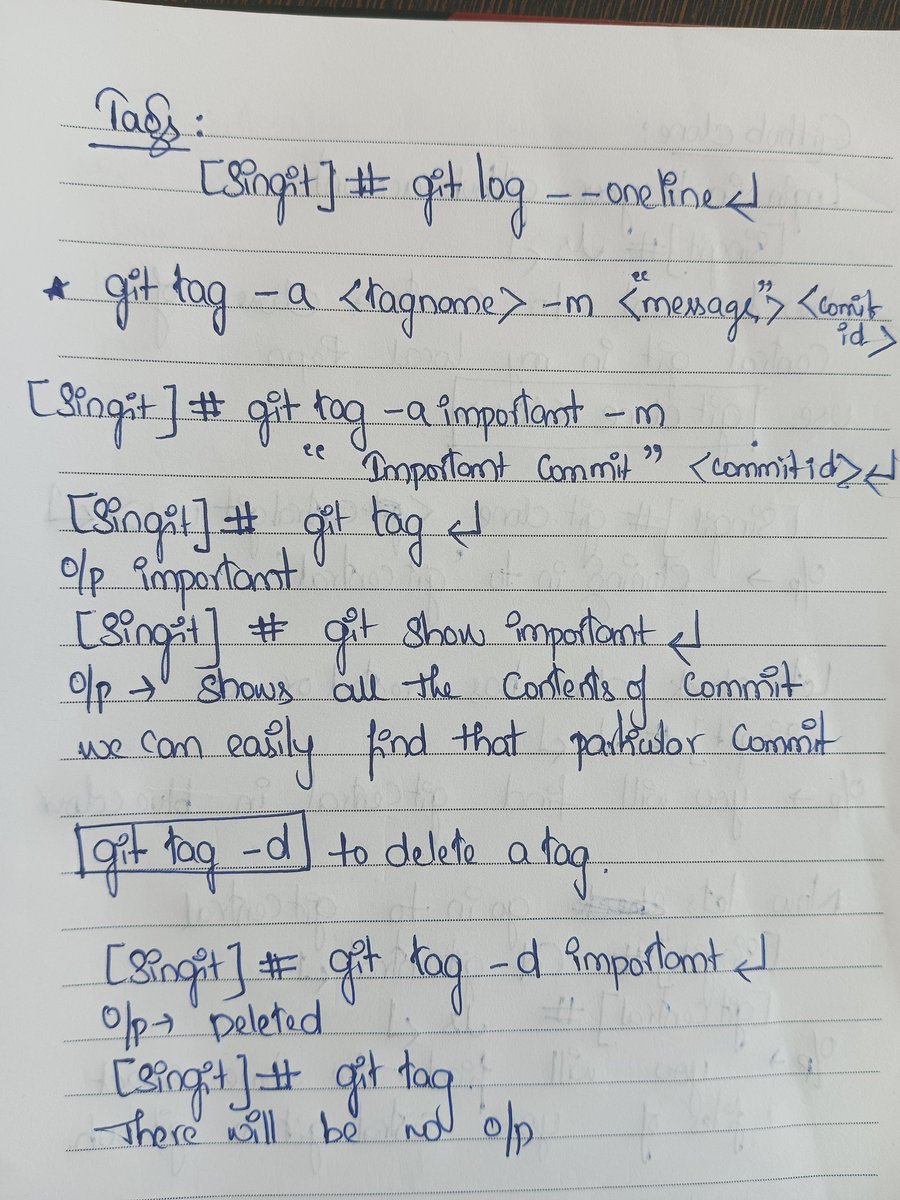 Tags :
[Singit] # git log --oneline ↵
* git tag -a <tagname> -m <"message"> <comit
id>
[Singit] # git tag -a important -m
"Important Commit" <commitid> ↵
[Singit] # git tag ↵
o/p important
[Singit] # git show important ↵
o/p → shows all the contents of commit
we can easily find that particular commit
git tag -d to delete a tag.
[Singit] # git tag -d important ↵
o/p → Deleted
[Singit] # git tag
There will be no o/p